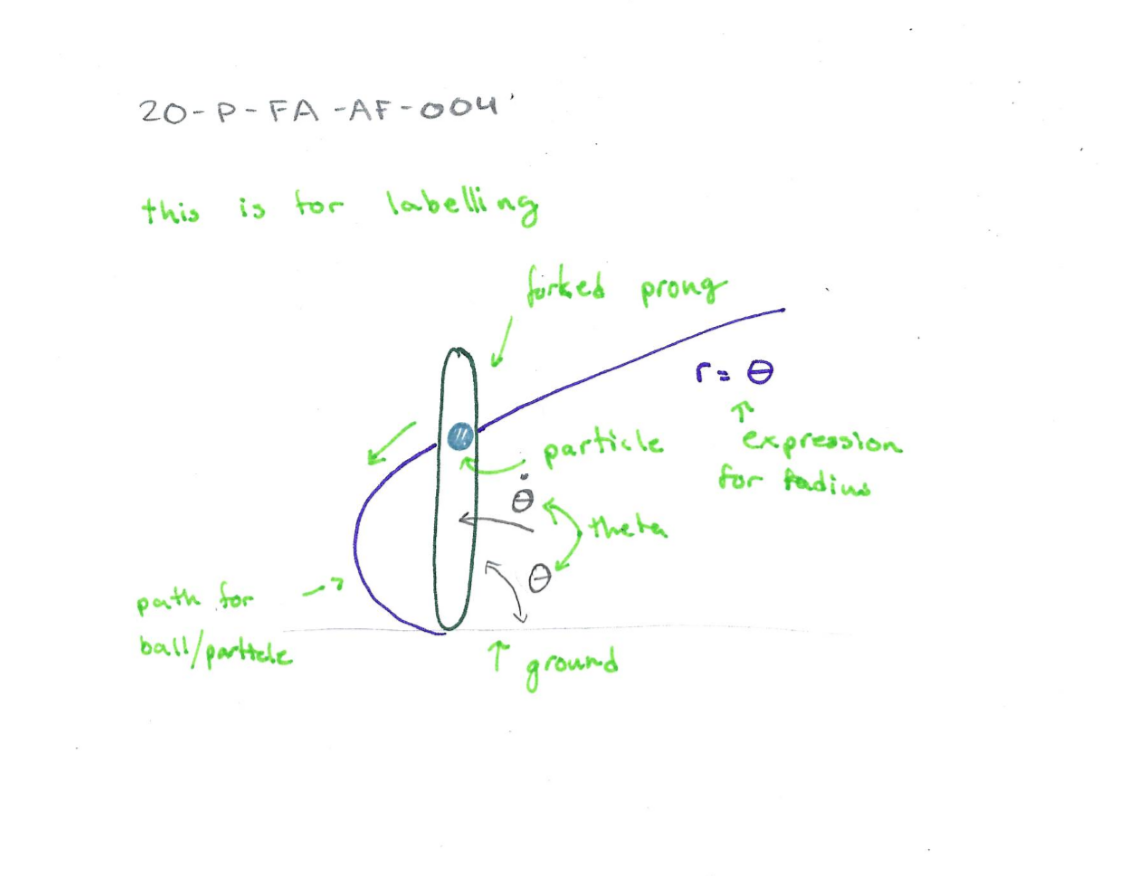 20-P-FA-AF-004
this is for labelling
forked prong
r = θ
expression
for radius
particle
θ̇
theta
θ
path for
ball/particle
ground